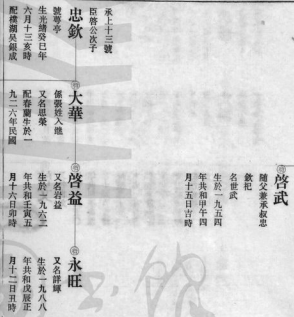 承上十三號
臣啓公次子
忠欽
號夢亭
生光緒癸巳年
六月十三亥時
配橫湖吳銀成
大華
係張姓入繼
又名思榮
配春蘭生於一
九二六年民國
啓益
又名岩益
生於一九六二
年共和壬寅五
月十六日卯時
永旺
又名詳輝
生於一九八八
年共和戊辰正
月十二日丑時
啓武
隨父兼承叔忠
欽祀
名世武
生於一九五四
年共和甲午四
月十五日吉時